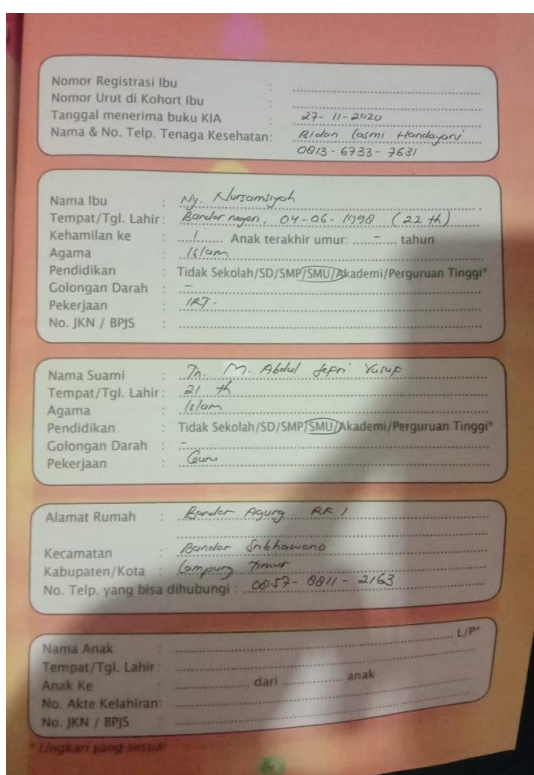 Nomor Registrasi Ibu :
Nomor Urut di Kohort Ibu :
Tanggal menerima buku KIA : 27-11-2020
Nama & No. Telp. Tenaga Kesehatan: Bidan Lasmi Handayani
0813-6733-7631
Nama Ibu : Ny. Nursamsiyah
Tempat/Tgl. Lahir : Bandar negeri, 04-06-1998 (22 th)
Kehamilan ke : 1 Anak terakhir umur: - tahun
Agama : Islam
Pendidikan : Tidak Sekolah/SD/SMP/SMU/Akademi/Perguruan Tinggi*
Golongan Darah : -
Pekerjaan : IRT.
No. JKN / BPJS :
Nama Suami : Tn. M. Abdul Jefri Yusuf
Tempat/Tgl. Lahir : 21 th
Agama : Islam
Pendidikan : Tidak Sekolah/SD/SMP/SMU/Akademi/Perguruan Tinggi*
Golongan Darah : -
Pekerjaan : Guru
Alamat Rumah : Bandar Agung RK 1
Kecamatan : Bandar Sribhawono
Kabupaten/Kota : Lampung Timur
No. Telp. yang bisa dihubungi : 0857-8811-2163
Nama Anak : L/P*
Tempat/Tgl. Lahir :
Anak Ke : dari anak
No. Akte Kelahiran:
No. JKN / BPJS :
* Lingkari yang sesuai